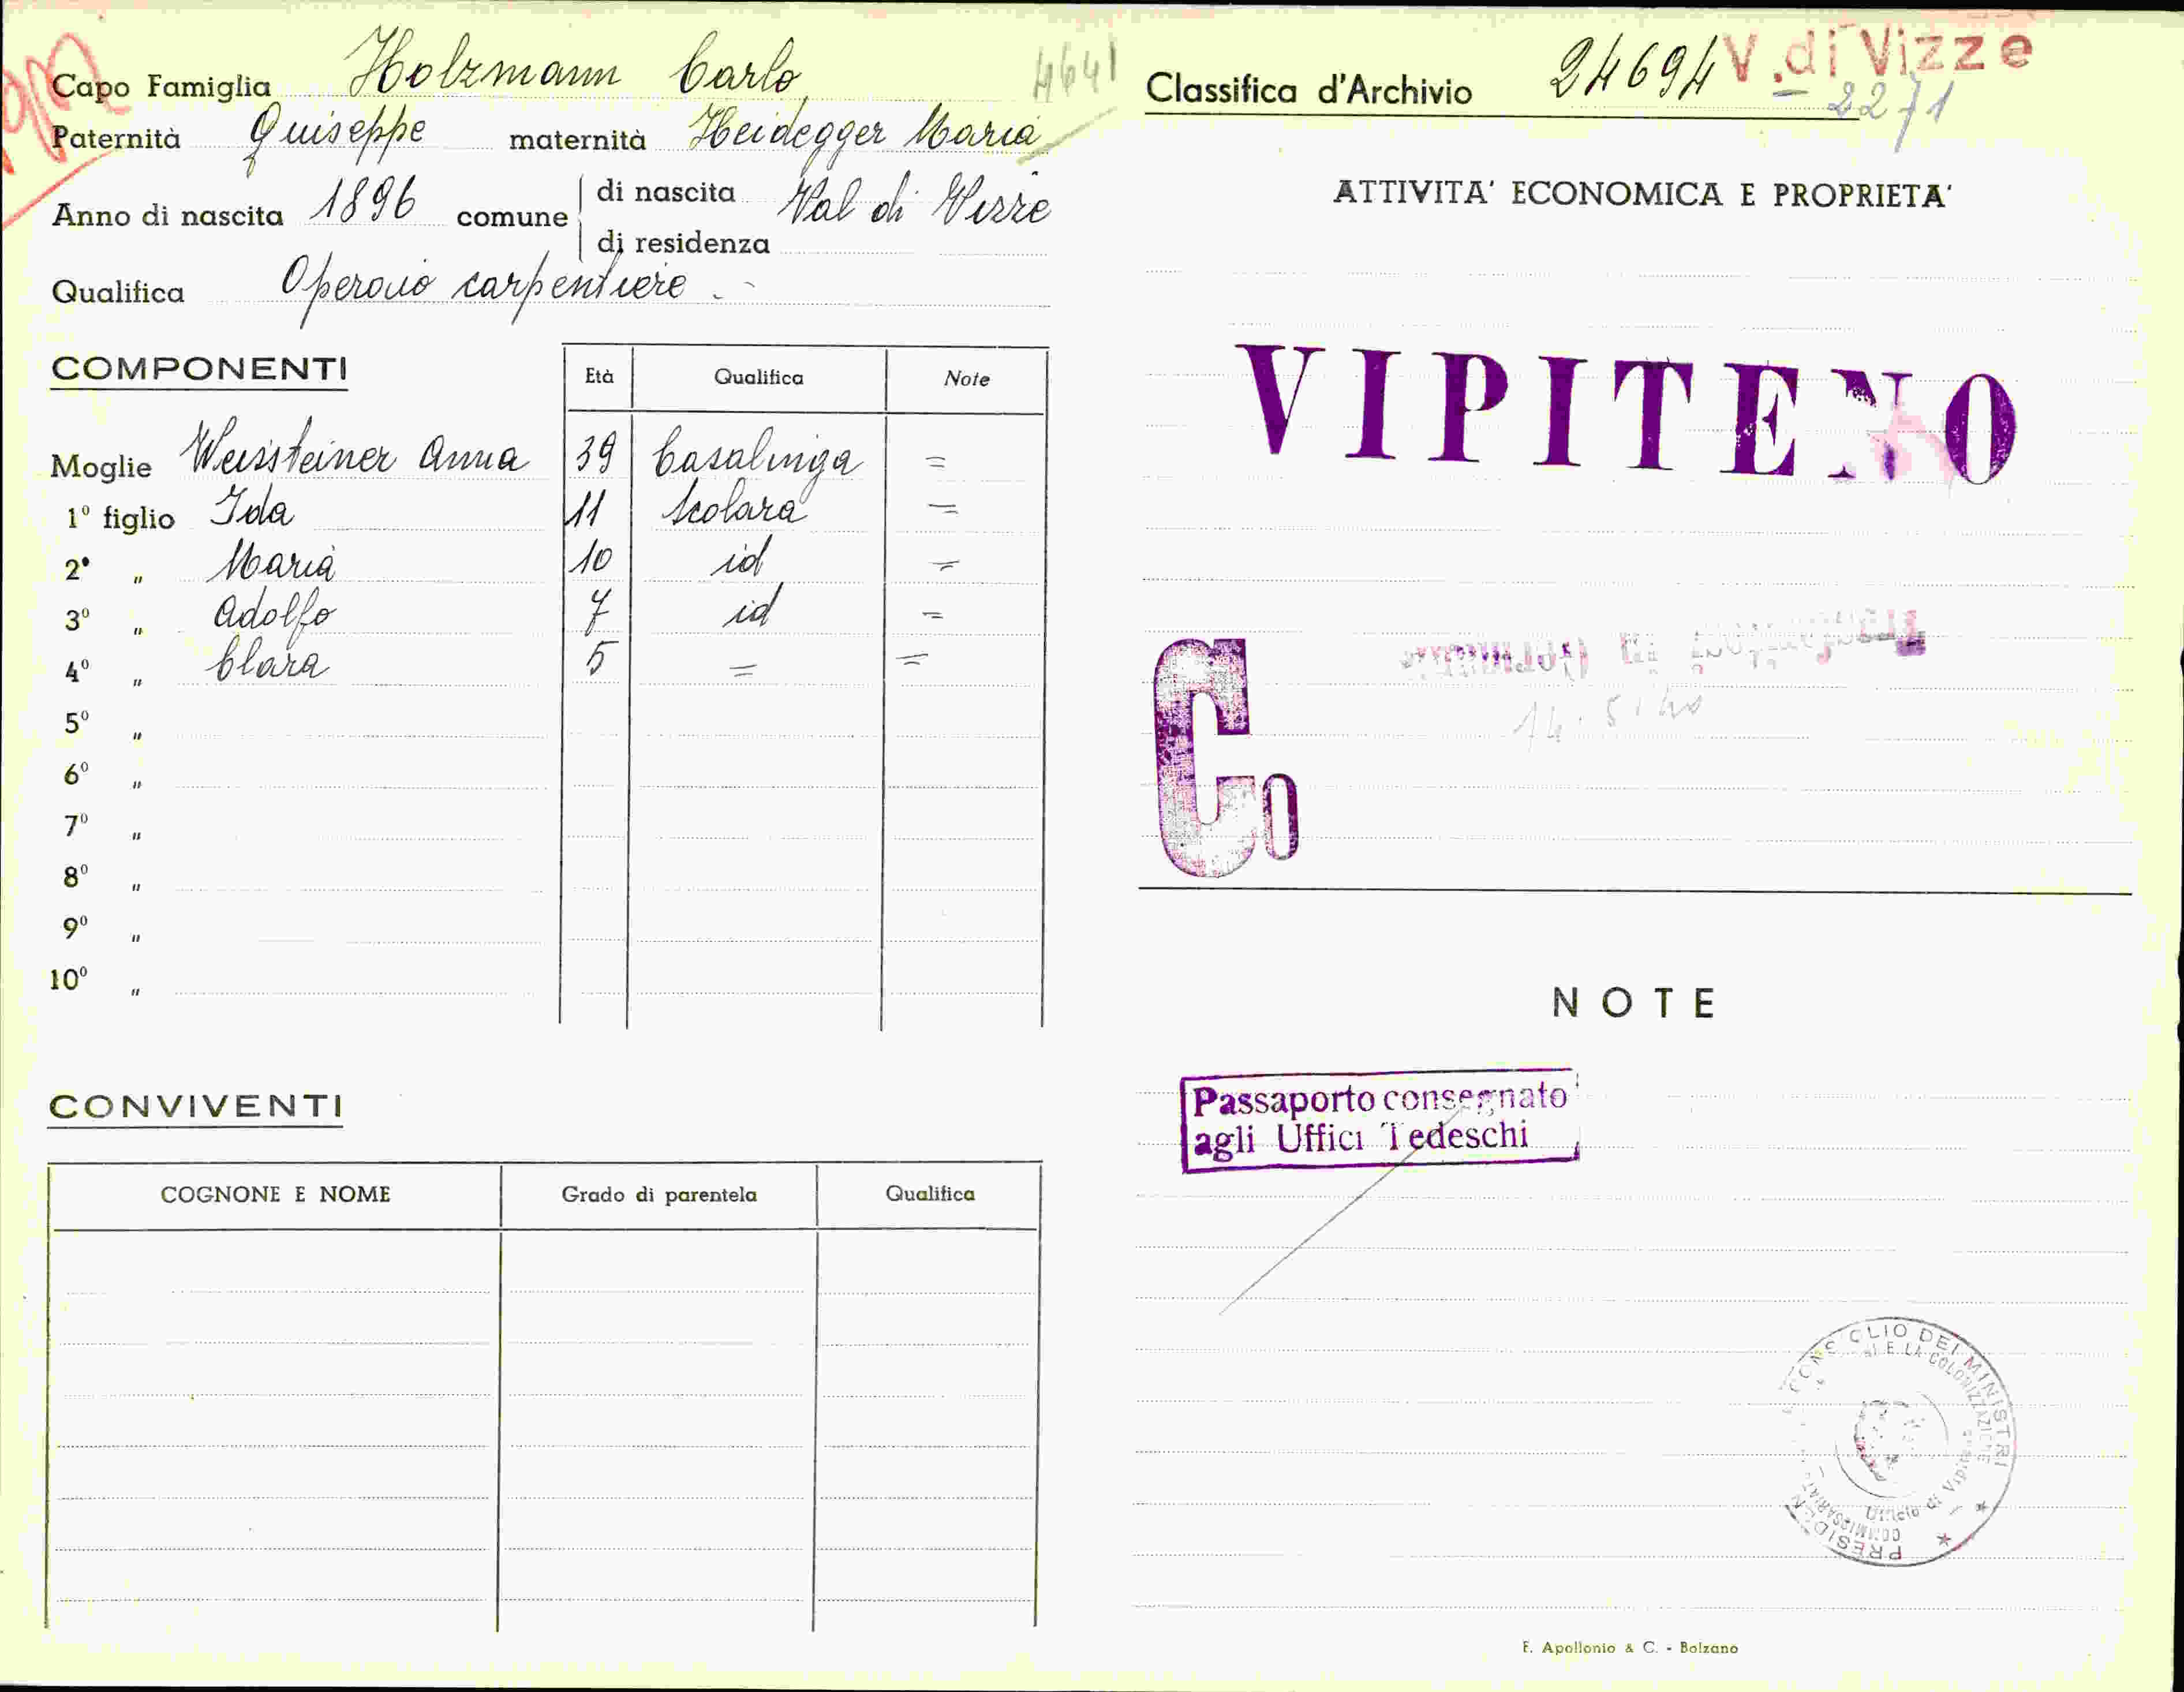 Capo Famiglia Holzmann Carlo 4641
Paternità Giuseppe maternità Heidegger Maria
Anno di nascita 1896 comune di nascita Val di Vizze
di residenza
Qualifica Operaio carpentiere . -
COMPONENTI Età Qualifica Note
Moglie Weissteiner Anna 39 Casalinga =
1º figlio Ida 11 Scolara =
2º " Maria 10 id =
3º " Adolfo 7 id =
4º " Clara 5 = =
5º "
6º "
7º "
8º "
9º "
10º "
CONVIVENTI
COGNONE E NOME Grado di parentela Qualifica
Classifica d'Archivio 24694 V. di Vizze
2271
ATTIVITA' ECONOMICA E PROPRIETA'
VIPITENO
Co
14.5.40
NOTE
Passaporto consegnato
agli Uffici Tedeschi
CONSIGLIO DEI MINISTRI
E LA COLONIZZAZIONE
Ufficio di Vipiteno
F. Apollonio & C. - Bolzano